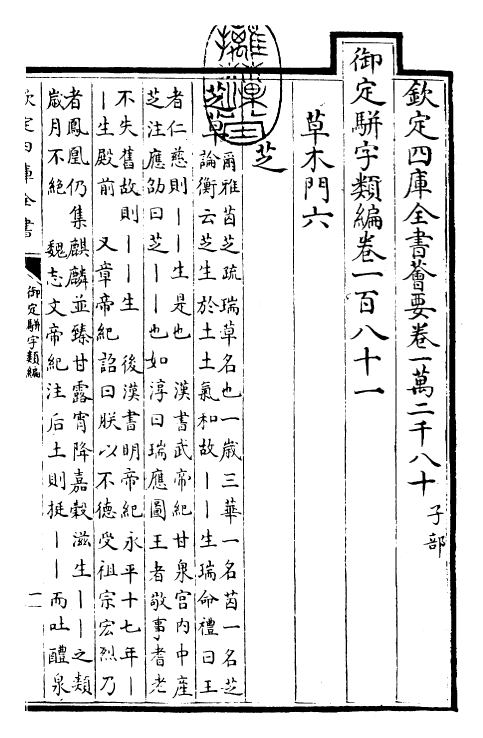 欽定四庫全書薈要卷一萬二千八十子部
御定駢字類編卷一百八十一
草木門六
芝
芝草爾雅茵芝疏瑞草名也一歲三華一名茵一名芝
論衡云芝生於土土氣和故――生瑞命禮曰王
者仁慈則――生是也　漢書武帝紀甘泉宮内中產
芝注應劭曰芝――也如淳曰瑞應圖王者敬事耆老
不失舊故則――生　後漢書明帝紀永平十七年―
―生殿前　又章帝紀詔曰朕以不德受祖宗宏烈乃
者鳳凰仍集麒麟並臻甘露宵降嘉穀滋生――之類
歲月不絕　魏志文帝紀注后土則挺――而吐醴泉
欽定四庫全書
御定駢字類編
一